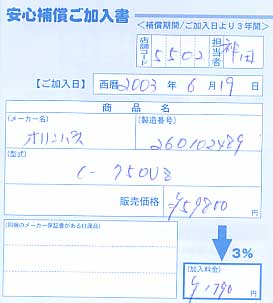 安心補償ご加入書
<補償期間/ご加入日より3年間>
店舗コード 5502 担当者 神田
【ご加入日】 西暦 2003 年 6 月 19 日
商品名
(メーカー名) (製造番号)
オリンパス 260102489
(型式)
C-750UZ
販売価格 ¥59800 円
(同梱のメーカー保証書がある付属品)
3%
(加入料金)
¥1790 円